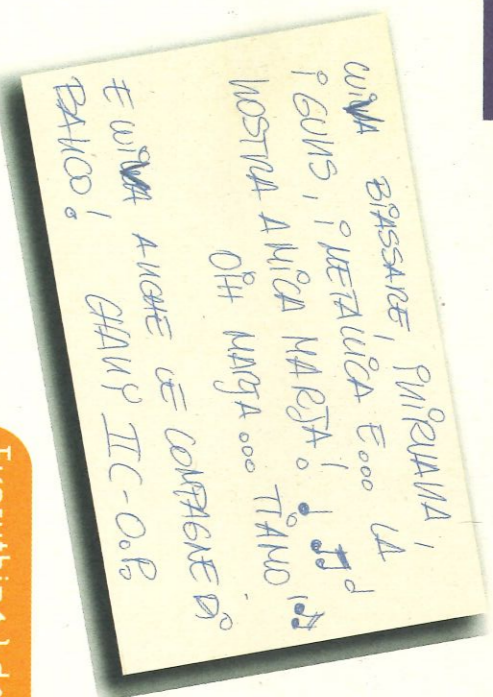 WIWA BIASSARE, I NIRVANA,
I GUNS, I METALLICA E... LA
NOSTRA AMICA MARJA! ♩ ♫ ♩
OIH MARJA... TI AMO! ♫
E WIWA ANCHE LE COMPAGNE DI
BANCO!
CHAMY IIC-O.P.